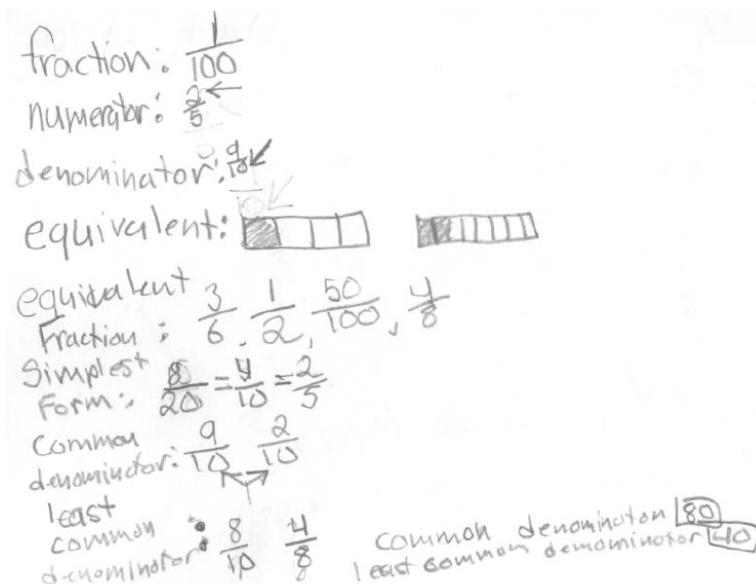 fraction: 1/100
numerator: 2/5 ←
denominator: 9/10
equivalent:
equivalent
Fraction: 3/6, 1/2, 50/100, 4/8
Simplest
Form: 8/20 = 4/10 = 2/5
common
denominator: 9/10 2/10
least
common
denominator: 8/10 4/8
common denominator 80
least common demominator 40